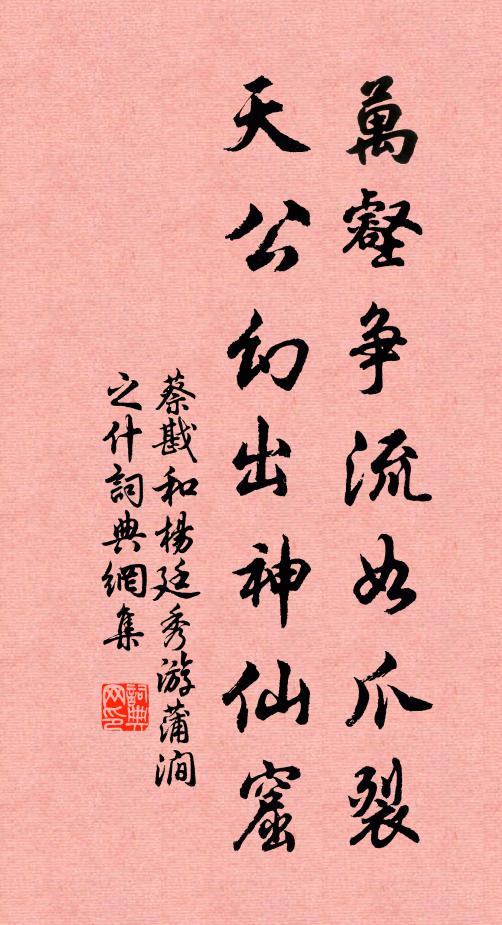 萬壑争流如爪裂
天公幻出神仙窟
蔡戡和楊廷秀游蒲澗
之什詞典網集
詞典
网印